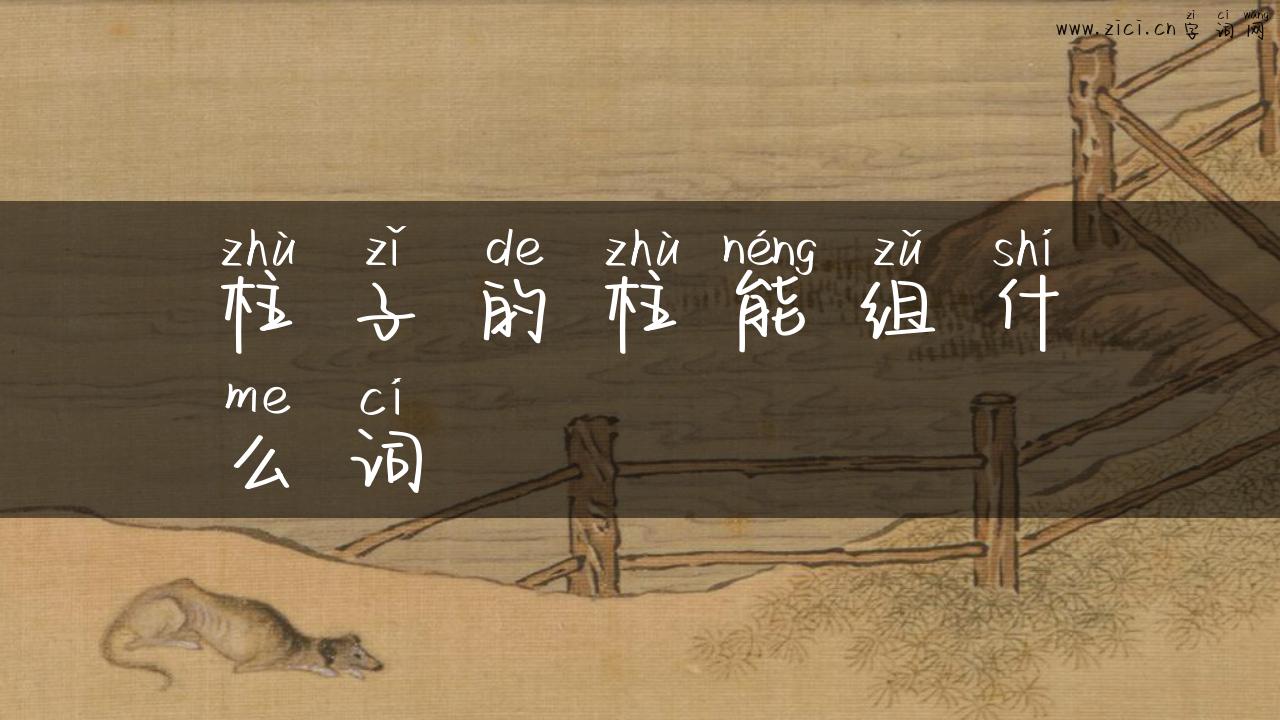 zì cí wǎng
www.zici.cn字词网
zhù zǐ de zhù néng zǔ shí
柱子的柱能组什
me cí
么词